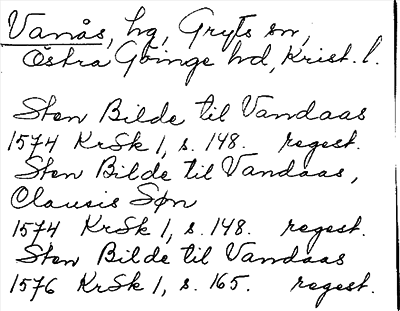 Vanås, hg, Gryts sn,
Östra Göinge hd, Krist. l.
Sten Bilde til Vandaas
1574 KrSk 1, s. 148. regest.
Sten Bilde til Vandaas,
Clausis Søn
1574 KrSk 1, s. 148. regest.
Sten Bilde til Vandaas
1576 KrSk 1, s. 165. regest.